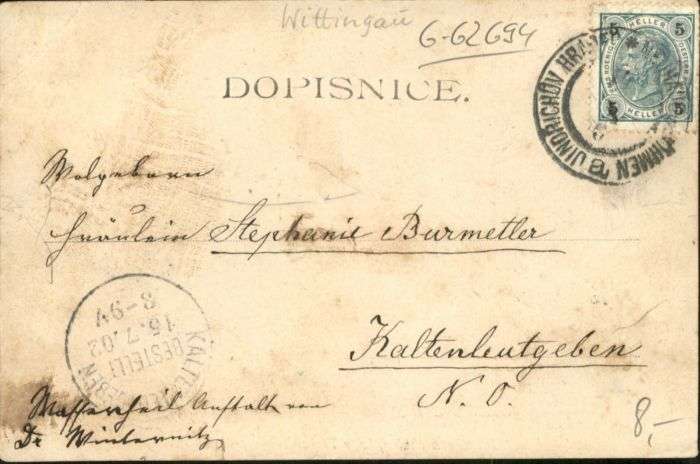 Wittingau
6-62694
DOPISNICE.
5 HELLER 5
5 HELLER 5
JINDRICHŮV HRADEC
Wolgeboren
Fräulein Stephanie Burmetler
Kaltenleutgeben
N. O.
BESTELLT
15.7.02
8-9V
Wasserheil Anstalt von
Dr Winternitz
8,-